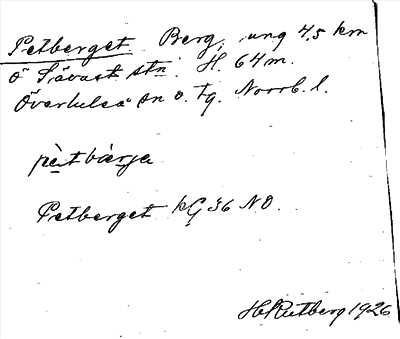 Petberget Berg, ung 4,5 km
Ö Sävast stn. H. 64 m.
Överluleå sn o. tg. Norrb. l.
pètbàrja
Petberget kG 36 NO.
H. Rutberg 1926